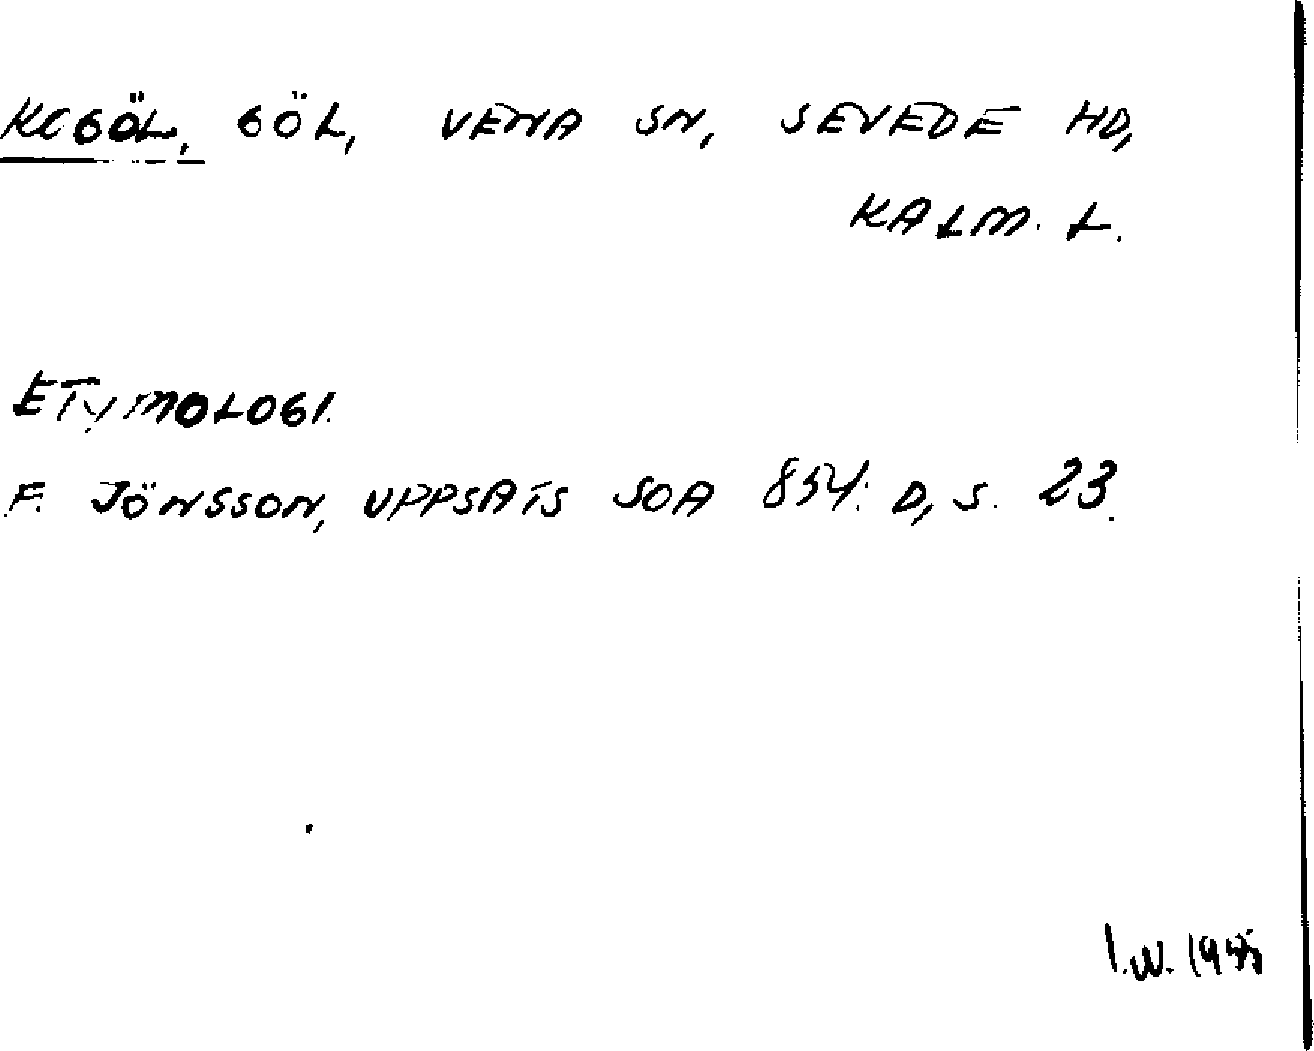 GÖL, VENA SN, SEVEDE HD,
KALM. L.
ETYMOLOGI.
F. JÖNSSON, UPPSATS SOA 854: D, S. 23.
I.W.